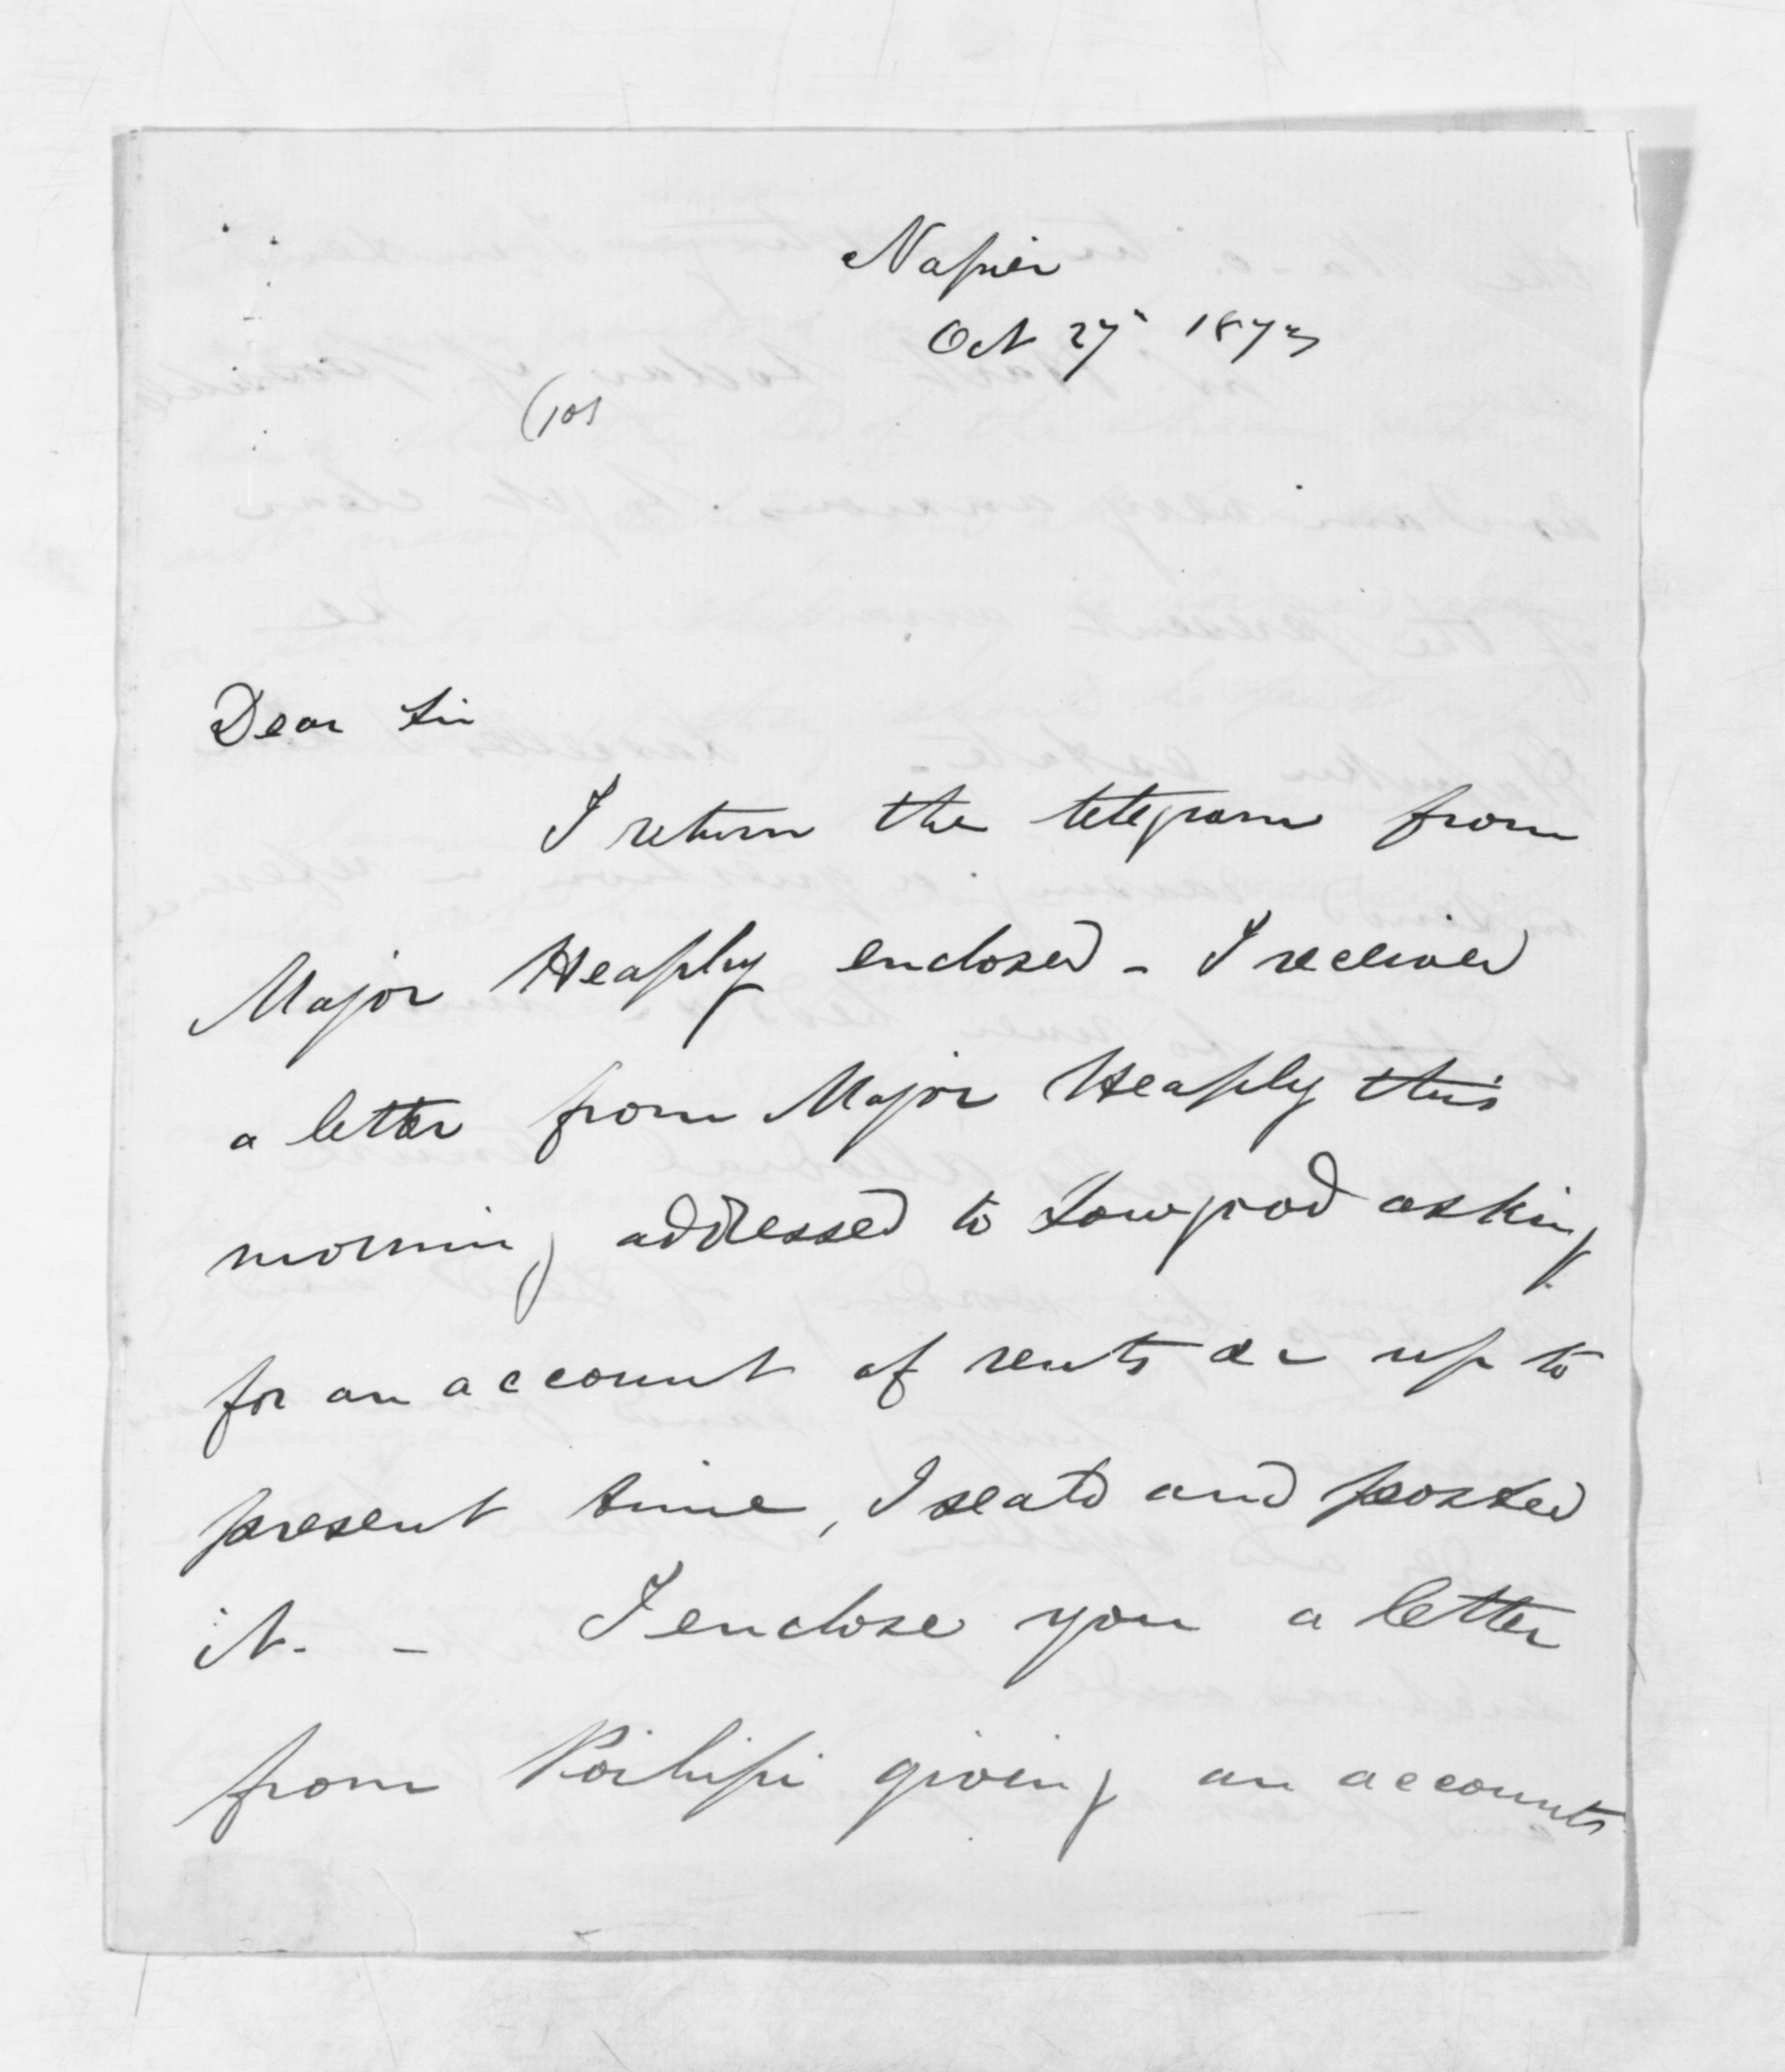 Napier
Oct 27" 1873
Dear Sir
I return the telegram from
Major Heaphy enclosed - I received
a letter from Major Heaphy this
morning addressed to Lowgood asking
for an account of rents &c up to
present time, I seal'd and posted
it. - I enclose you a letter
from Poihipi giving an accounts